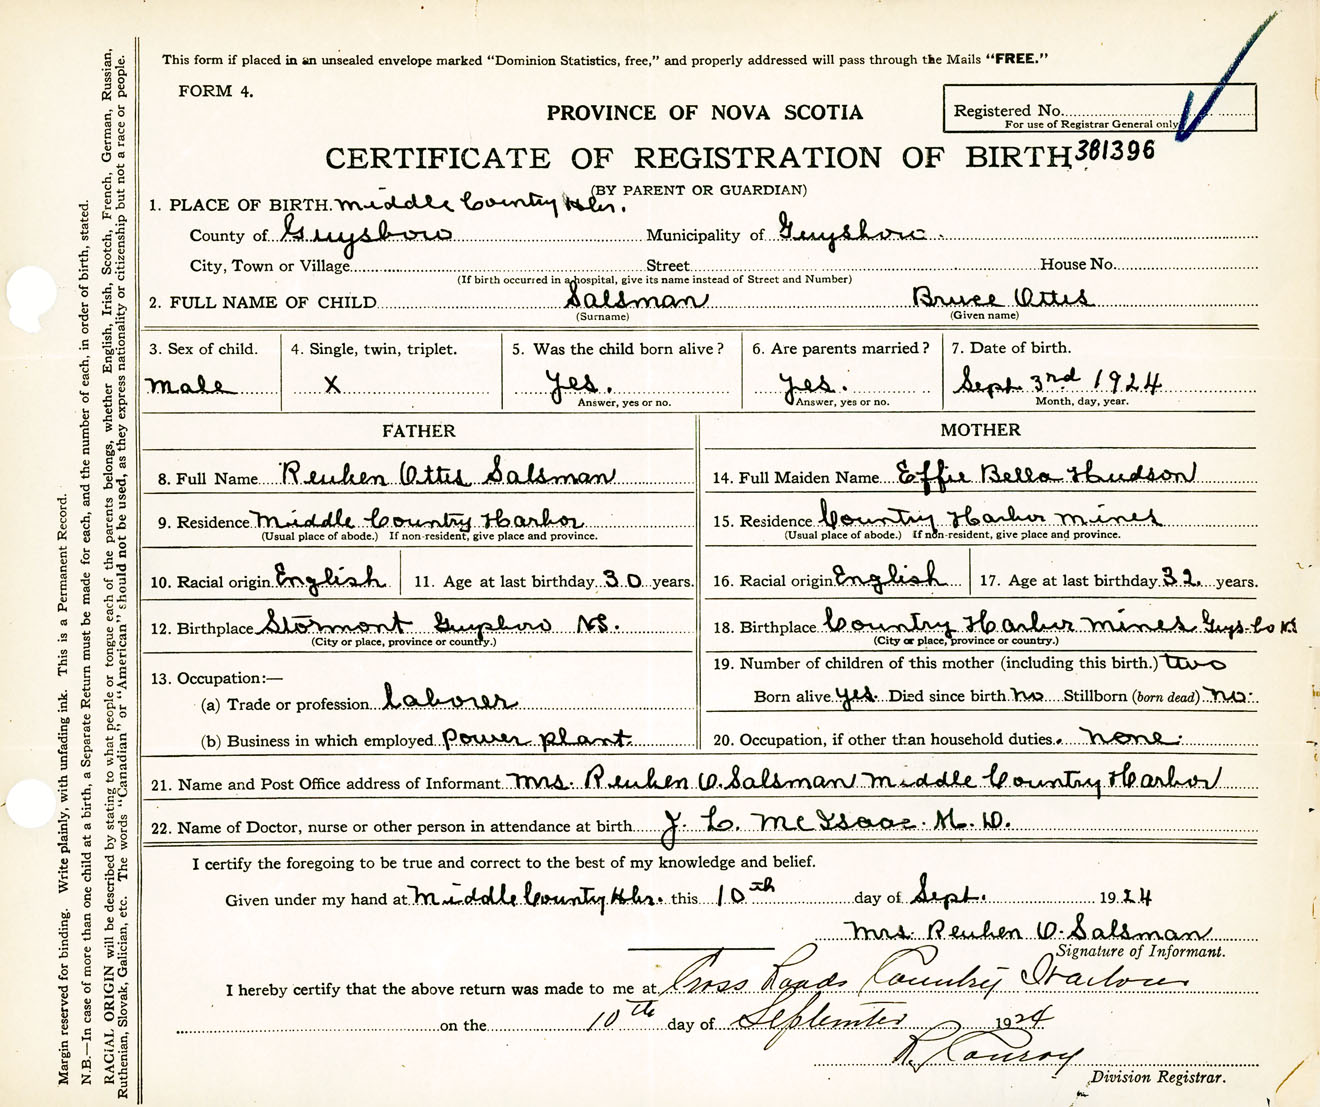 This form if placed in an unsealed envelope marked "Dominion Statistics, free," and properly addressed will pass through the Mails "FREE."
FORM 4.
Registered No.
For use of Registrar General only
PROVINCE OF NOVA SCOTIA
CERTIFICATE OF REGISTRATION OF BIRTH 381396
(BY PARENT OR GUARDIAN)
1. PLACE OF BIRTH. Middle Country Hbr.
County of Guysboro Municipality of Guysboro.
City, Town or Village Street House No.
(If birth occurred in a hospital, give its name instead of Street and Number)
2. FULL NAME OF CHILD Salsman Bruce Ottis
(Surname) (Given name)
3. Sex of child. 4. Single, twin, triplet. 5. Was the child born alive? 6. Are parents married? 7. Date of birth.
Male X Yes. Yes. Sept 3rd 1924
Answer, yes or no. Answer, yes or no. Month, day, year.
FATHER MOTHER
8. Full Name Reuben Ottis Salsman 14. Full Maiden Name Effie Bella Hudson
9. Residence Middle Country Harbor 15. Residence Country Harbor Mines
(Usual place of abode.) If non-resident, give place and province. (Usual place of abode.) If non-resident, give place and province.
10. Racial origin English 11. Age at last birthday 30 years. 16. Racial origin English 17. Age at last birthday 32 years.
12. Birthplace Stormont Guysboro NS. 18. Birthplace Country Harbor Mines Guys. Co NS
(City or place, province or country.) (City or place, province or country.)
13. Occupation:— 19. Number of children of this mother (including this birth.) two
(a) Trade or profession laborer Born alive yes. Died since birth no Stillborn (born dead) no.
(b) Business in which employed Power plant 20. Occupation, if other than household duties. None.
21. Name and Post Office address of Informant Mrs. Reuben O. Salsman Middle Country Harbor
22. Name of Doctor, nurse or other person in attendance at birth J. L. McIsaac. M. D.
I certify the foregoing to be true and correct to the best of my knowledge and belief.
Given under my hand at Middle Country Hbr. this 10th day of Sept. 1924
Mrs. Reuben O. Salsman
Signature of Informant.
I hereby certify that the above return was made to me at Cross Roads Country Harbour
on the 10th day of September 1924
R. Conroy
Division Registrar.
Margin reserved for binding. Write plainly, with unfading ink. This is a Permanent Record.
N.B.—In case of more than one child at a birth, a Separate Return must be made for each, and the number of each, in order of birth, stated.
RACIAL ORIGIN will be described by stating to what people or tongue each of the parents belongs, whether English, Irish, Scotch, French, German, Russian,
Ruthenian, Slovak, Galician, etc. The words "Canadian" or "American" should not be used, as they express nationality or citizenship but not a race or people.